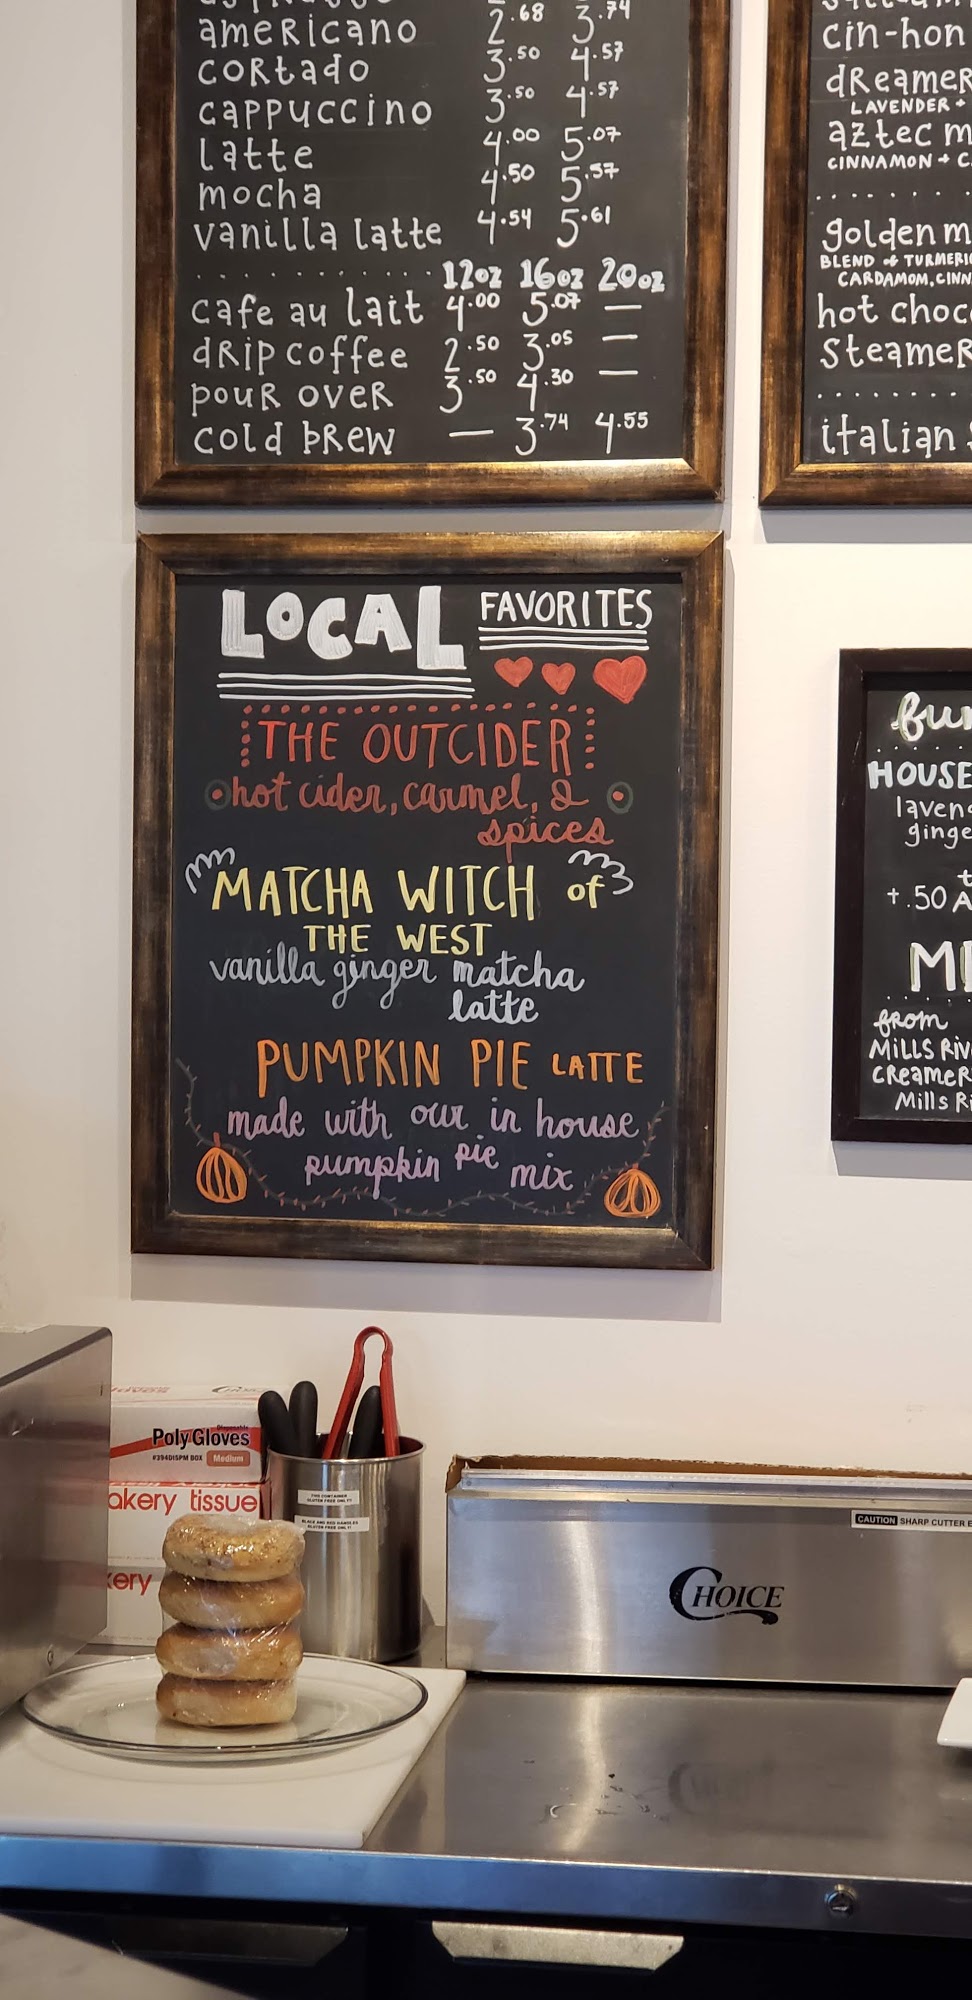 americano 2.68 3.74
cortado 3.50 4.57
cappuccino 3.50 4.57
latte 4.00 5.07
mocha 4.50 5.57
vanilla latte 4.54 5.61
12oz 16oz 20oz
cafe au lait 4.00 5.07 —
drip coffee 2.50 3.05 —
pour over 3.50 4.30 —
cold brew — 3.74 4.55
cin-hon
dreamer
LAVENDER +
aztec m
CINNAMON + C
golden m
BLEND of TURMERIC
CARDAMOM, CINN
hot choc
steamer
italian
LOCAL FAVORITES
THE OUTCIDER
hot cider, carmel, &
spices
MATCHA WITCH of
THE WEST
vanilla ginger matcha
latte
PUMPKIN PIE LATTE
made with our in house
pumpkin pie mix
HOUSE
laven
ginge
+.50 A
from
MILLS RIV
CREAMER
Mills Ri
Disposable
Poly Gloves
#394DISPM BOX Medium
akery tissue
kery
THIS CONTAINER
GLUTEN FREE ONLY!!
BLACK AND RED HANDLES
GLUTEN FREE ONLY!
CAUTION SHARP CUTTER E
CHOICE